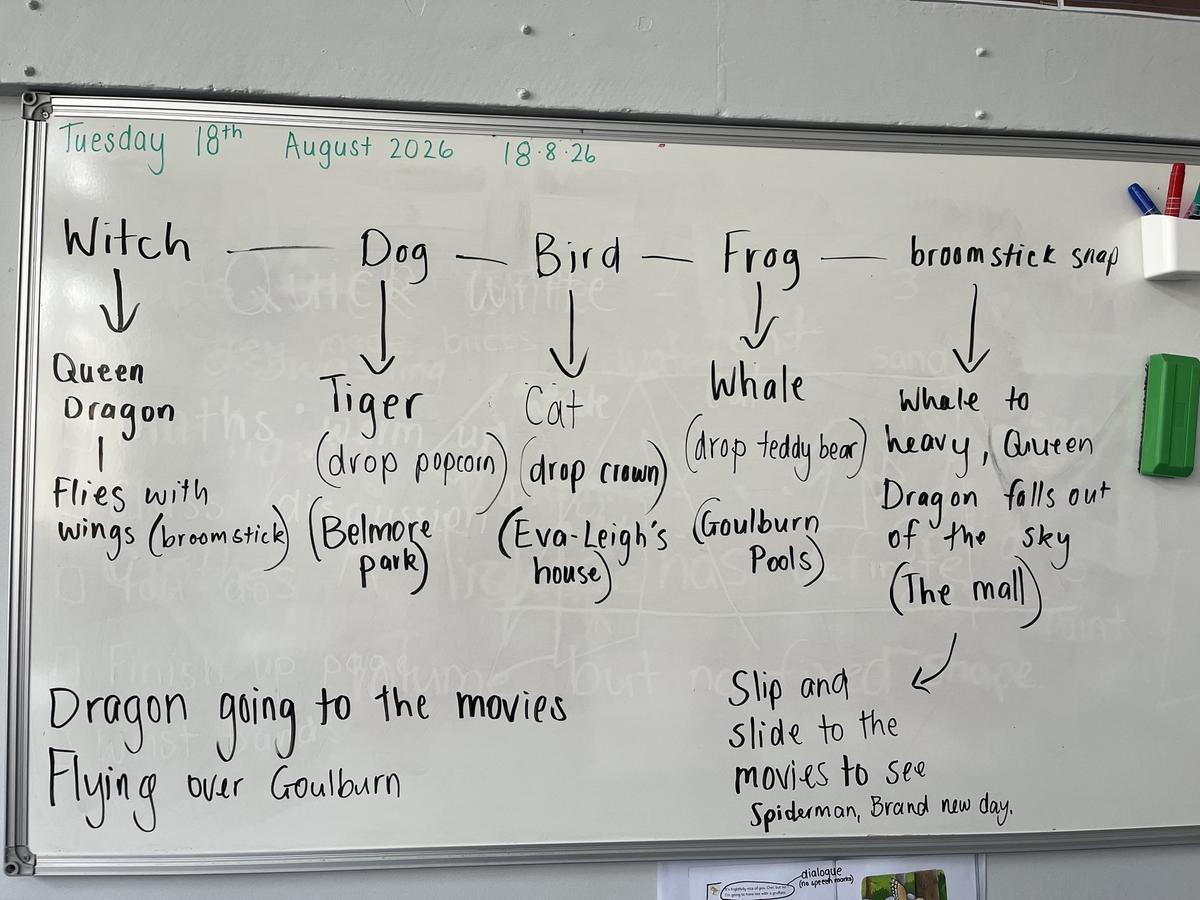 Tuesday 18th August 2026 18.8.26
Witch — Dog — Bird — Frog — broomstick snap
Queen
Dragon
Flies with
wings (broomstick)
Tiger
(drop popcorn)
(Belmore
park)
Cat
(drop crown)
(Eva-Leigh's
house)
Whale
(drop teddy bear)
(Goulburn
Pools)
Whale to
heavy, Queen
Dragon falls out
of the sky
(The mall)
Slip and
slide to the
movies to see
Spiderman, Brand new day.
Dragon going to the movies
Flying over Goulburn
dialogue
(no speech marks)